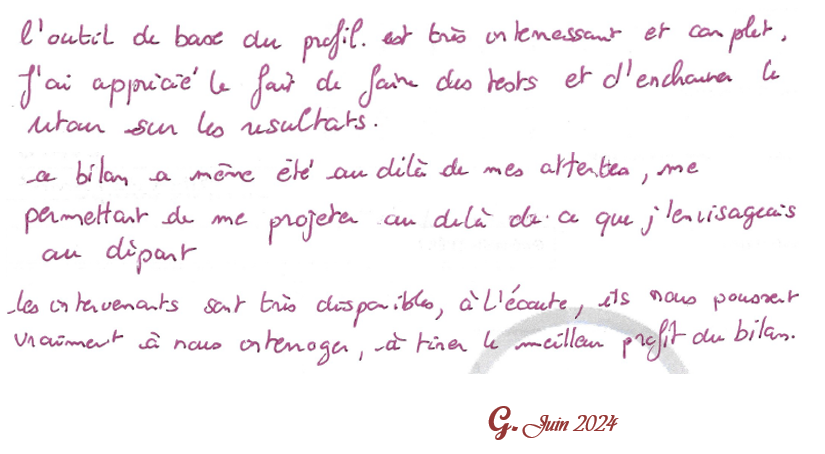 l'outil de base du profil. est très interressant et complet.
J'ai apprécié le fait de faire des tests et d'enchainer le
retour sur les resultats.
ce bilan a même été au délà de mes attentes, me
permettant de me projeter au delà de ce que j'envisageais
au départ
les intervenants sont très disponibles, à l'écoute, ils nous poussent
vraiment à nous interroger, à tirer le meilleur profit du bilan.
G. Juin 2024